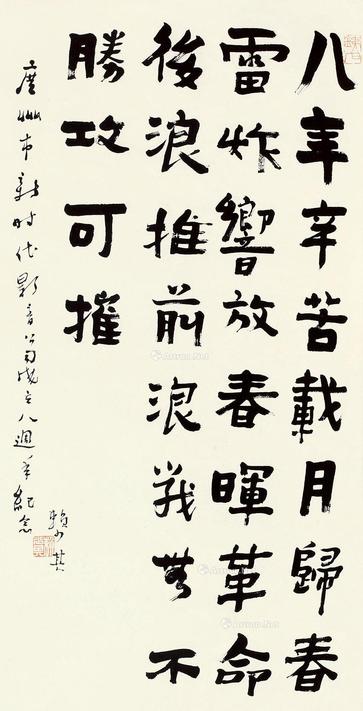 八年辛苦載月歸春
雷炸響放春暉革命
後浪推前浪無不
勝攻可摧
廣州市新时代影音公司成立八週年紀念
賴少其
Artron.Net